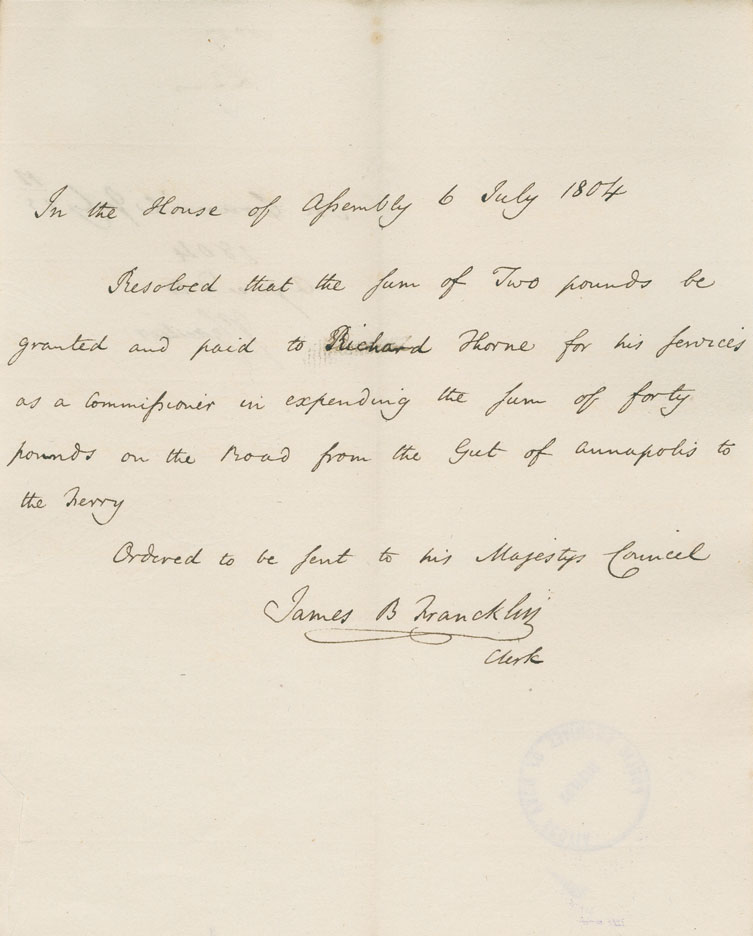 In the House of Assembly 6 July 1804
Resolved that the sum of Two pounds be
granted and paid to Richard Thorne for his services
as a Commissioner in expending the sum of forty
pounds on the Road from the Gut of Annapolis to
the Ferry
Ordered to be sent to his Majestys Councel
James B Francklin
Clerk